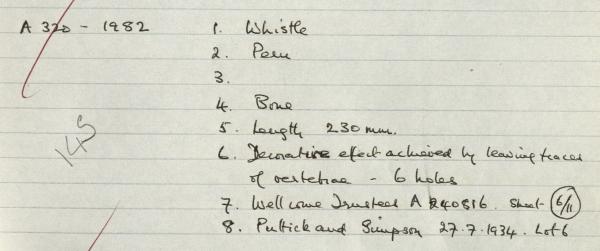 A 320 - 1982
1. Whistle
2. Peru
3.
4. Bone
5. Length 230 mm.
6. Decorative effect achieved by leaving traces
of vertebrae - 6 holes
145
7. Wellcome Trustees A 240816. Sheet 6/11
8. Puttick and Simpson 27.7.1934. Lot 6